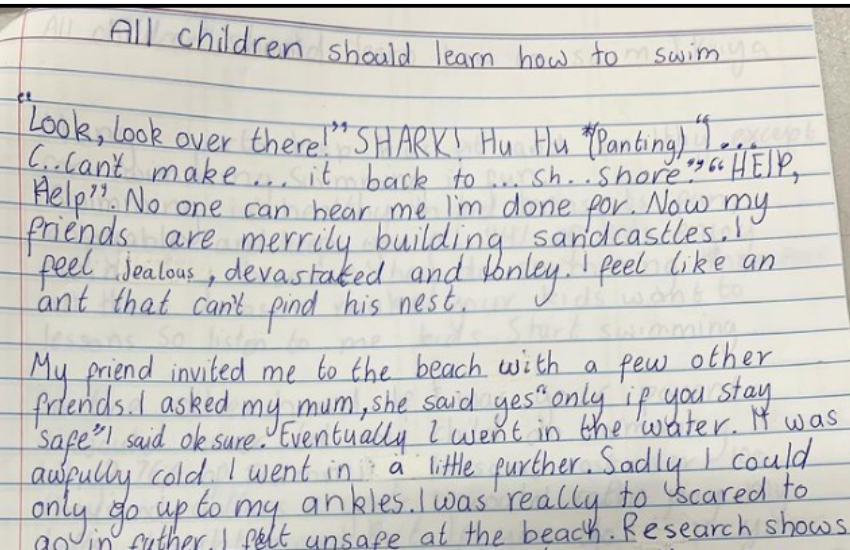 All children should learn how to swim
"Look, Look over there!" SHARK! Hu Hu *(Panting)" ...
C..Can't make ... it back to ... sh..shore" "HElP,
Help". No one can hear me I'm done for. Now my
friends are merrily building sandcastles. I
feel Jealous, devastated and lonley. I feel like an
ant that can't find his nest.
My friend invited me to the beach with a few other
friends. I asked my mum, she said yes "only if you stay
safe" I said ok sure. Eventually I went in the water. It was
awfully cold I went in a little further. Sadly I could
only go up to my ankles. I was really to scared to
go in futher. I felt unsafe at the beach. Research shows